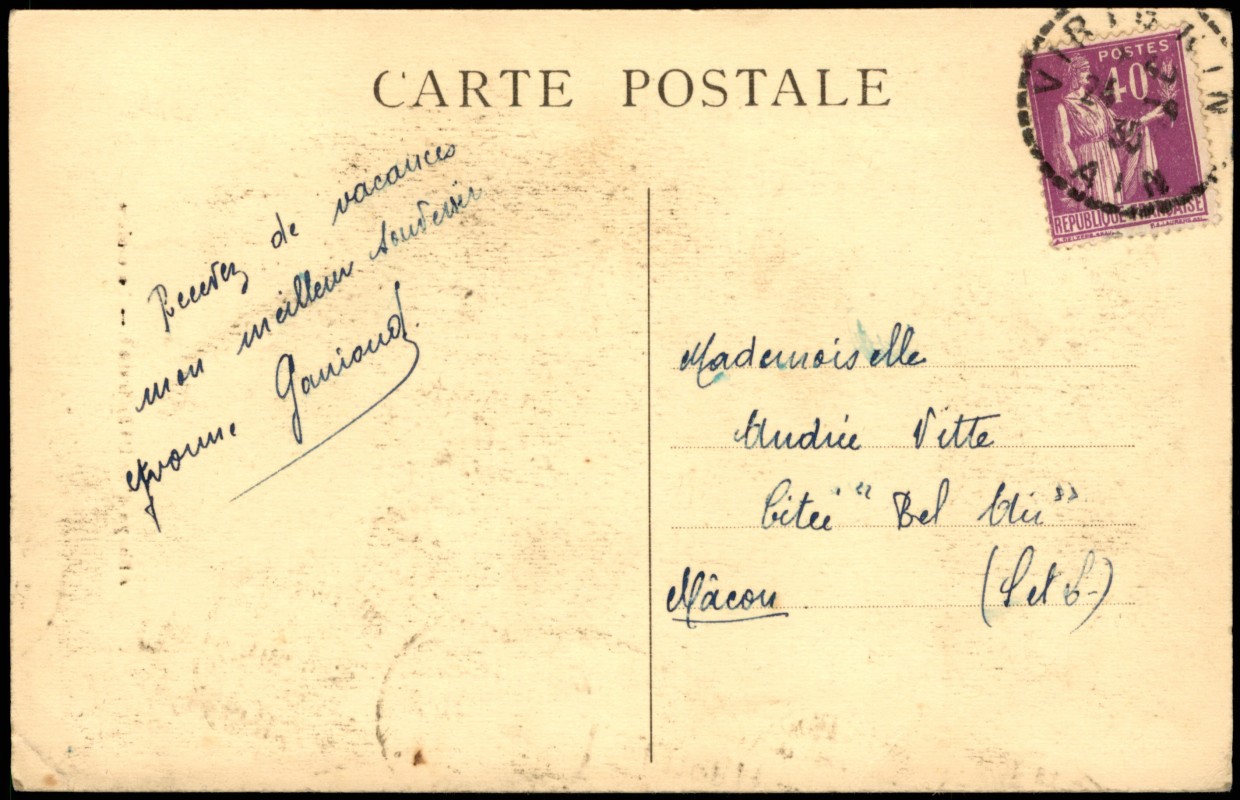 CARTE POSTALE
Recevez de vacances
mon meilleur souvenir
Yvonne
POSTES
40
RÉPUBLIQUE FRANÇAISE
24
35
AIN
Mademoiselle
Andrée Vitte
Citée "Bel Air"
Mâcon (S et L-)